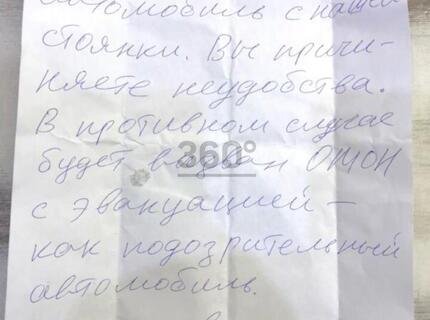 автомобиль с нашей
стоянки. Вы причи-
няете неудобства.
В противном случае
будет вызван ОМОН
360°
с эвакуацией –
как подозрительный
автомобиль.